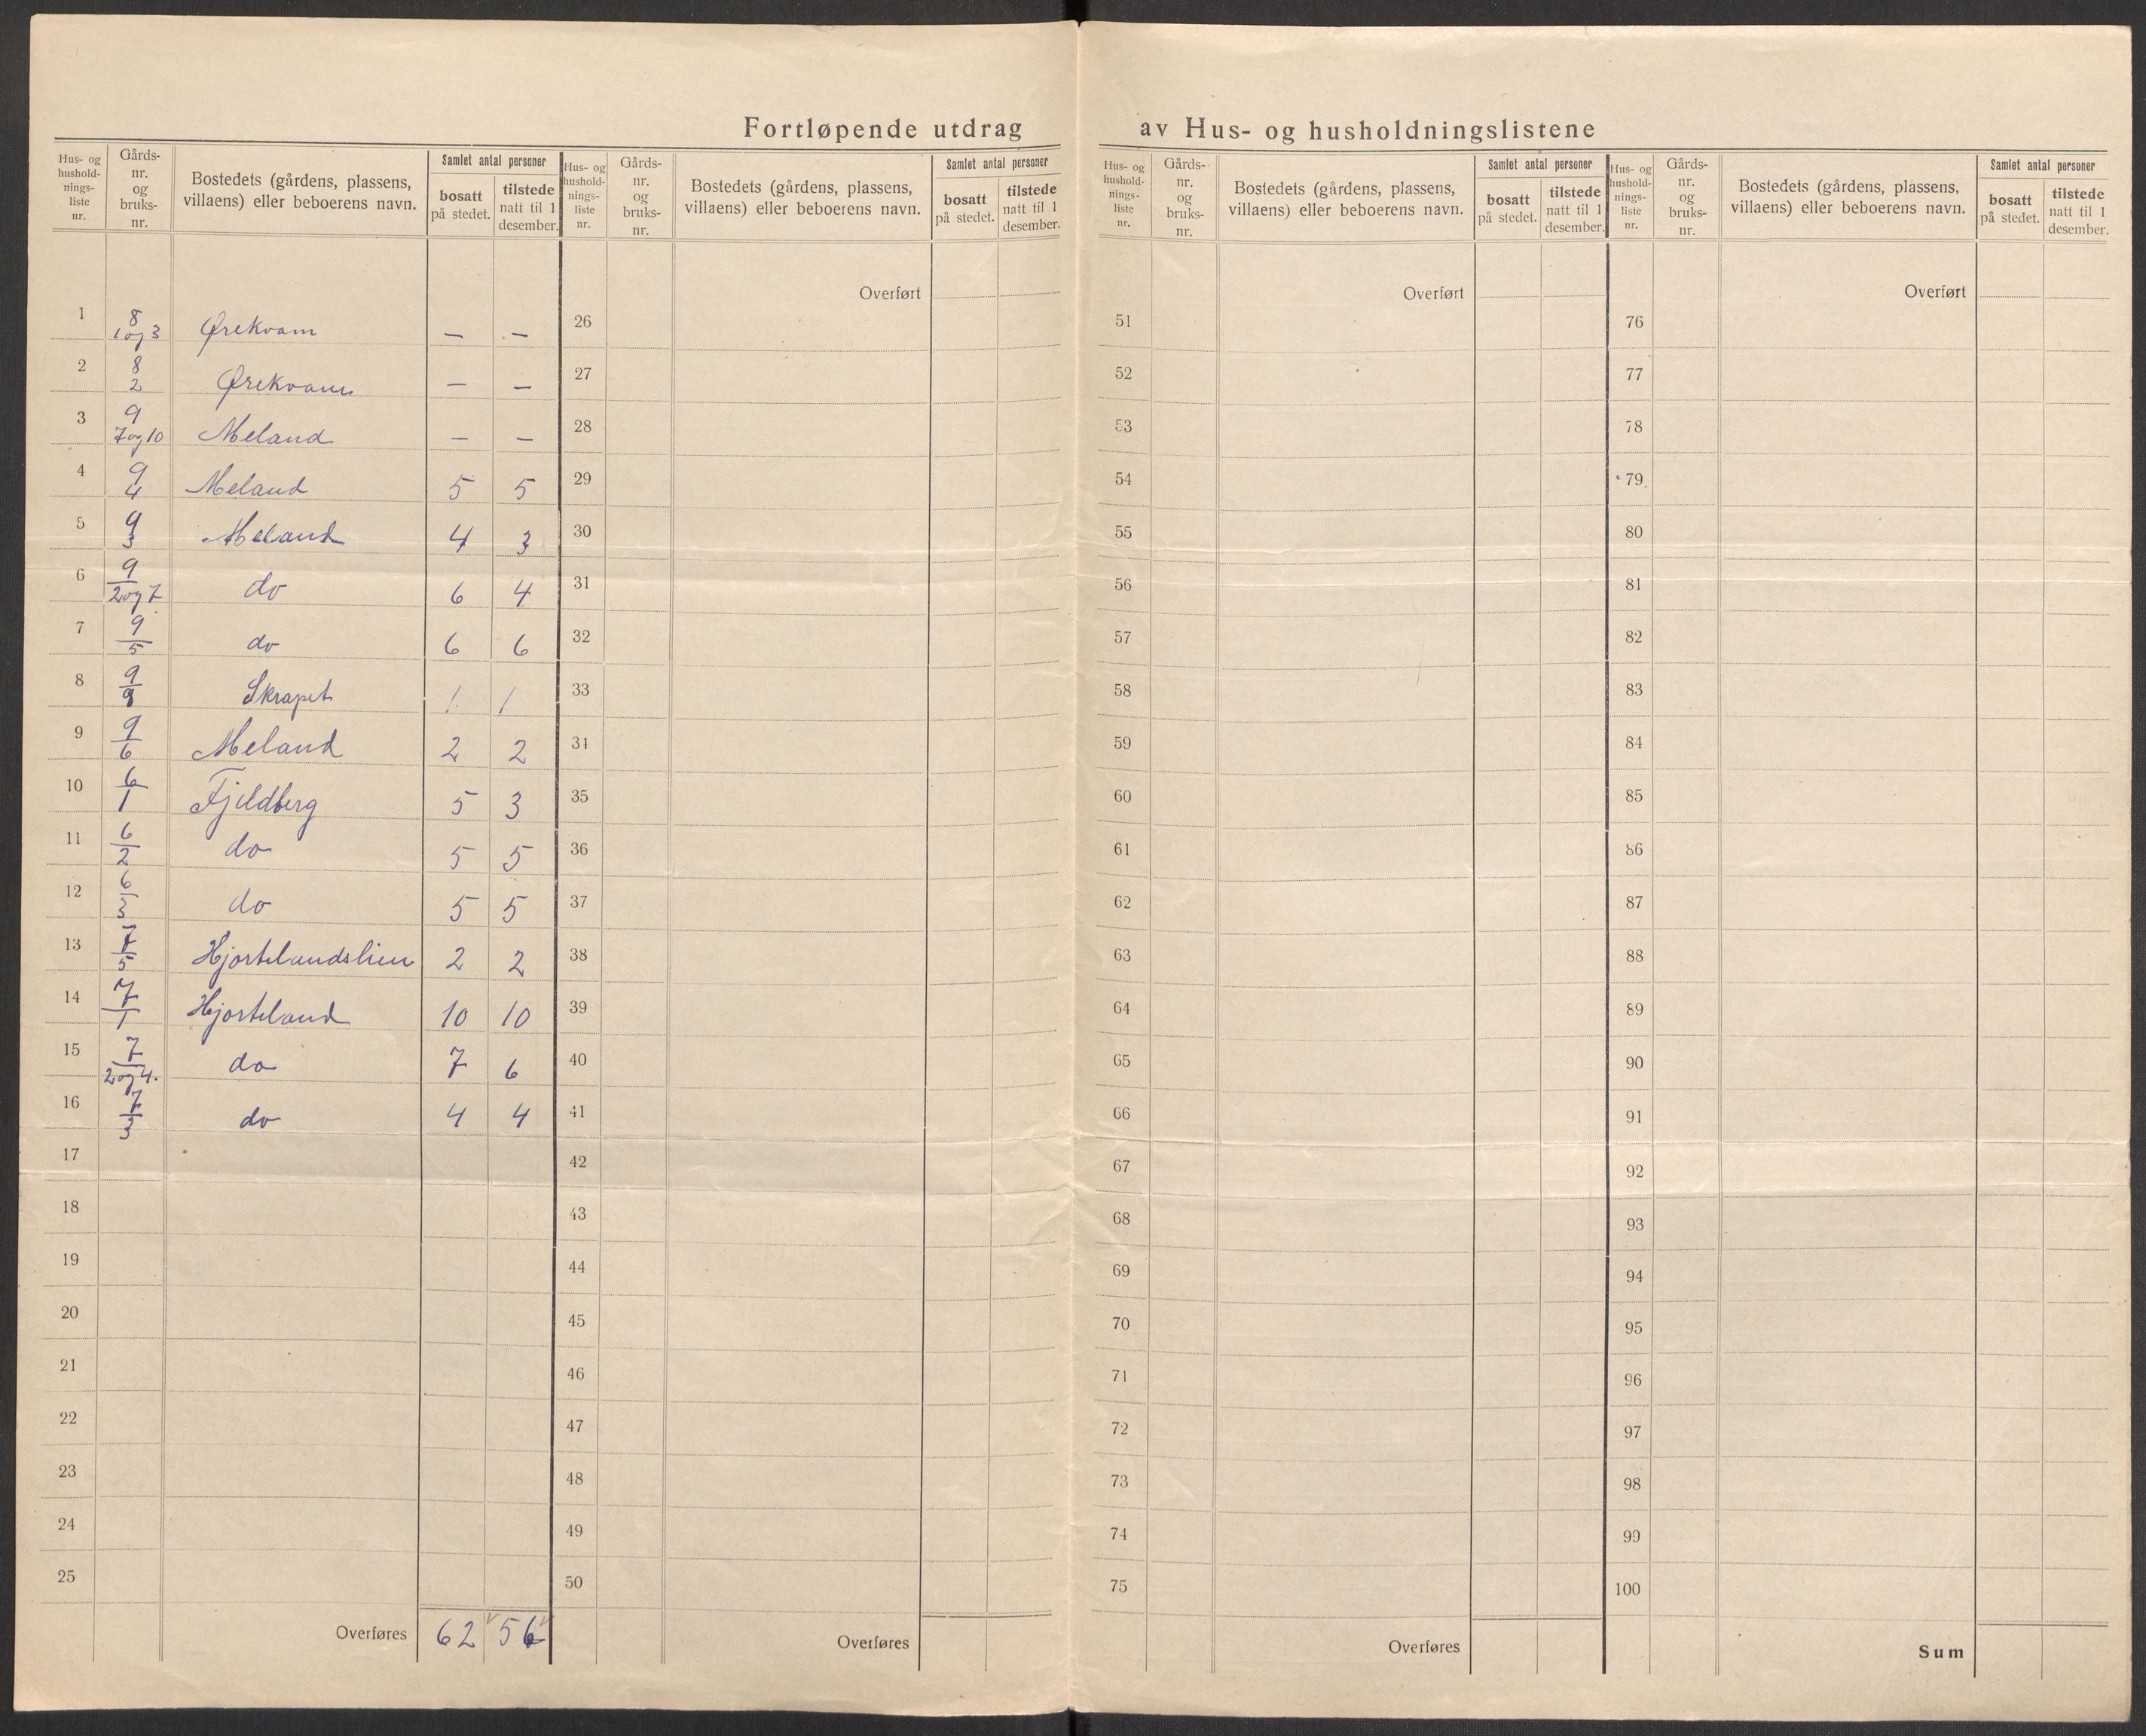 Fortløpende utdrag av Hus- og husholdningslistene
Hus- og hushold-nings-liste nr. | Gårds-nr. og bruks-nr. | Bostedets (gårdens, plassens, villaens) eller beboerens navn. | Samlet antal personer | bosatt på stedet. | tilstede natt til 1 desember.
1 | 8 / 1 og 3 | Ørekvam | — | —
2 | 8 / 2 | Ørekvam | — | —
3 | 9 / 7 og 10 | Meland | — | —
4 | 9 / 4 | Meland | 5 | 5
5 | 9 / 3 | Meland | 4 | 3
6 | 9 / 2 og 7 | do | 6 | 4
7 | 9 / 5 | do | 6 | 6
8 | 9 / 8 | Skrapet | 1 | 1
9 | 9 / 6 | Meland | 2 | 2
10 | 6 / 1 | Fjeldberg | 5 | 3
11 | 6 / 2 | do | 5 | 5
12 | 6 / 3 | do | 5 | 5
13 | 7 / 5 | Hjortelandslien | 2 | 2
14 | 7 / 1 | Hjorteland | 10 | 10
15 | 7 / 2 og 4. | do | 7 | 6
16 | 7 / 3 | do | 4 | 4
17
18
19
20
21
22
23
24
25
Overføres | 62 | 56
Hus- og hushold-nings-liste nr. | Gårds-nr. og bruks-nr. | Bostedets (gårdens, plassens, villaens) eller beboerens navn. | Samlet antal personer | bosatt på stedet. | tilstede natt til 1 desember.
Overført
26
27
28
29
30
31
32
33
34
35
36
37
38
39
40
41
42
43
44
45
46
47
48
49
50
Overføres
Hus- og hushold-nings-liste nr. | Gårds-nr. og bruks-nr. | Bostedets (gårdens, plassens, villaens) eller beboerens navn. | Samlet antal personer | bosatt på stedet. | tilstede natt til 1 desember.
Overført
51
52
53
54
55
56
57
58
59
60
61
62
63
64
65
66
67
68
69
70
71
72
73
74
75
Overføres
Hus- og hushold-nings-liste nr. | Gårds-nr. og bruks-nr. | Bostedets (gårdens, plassens, villaens) eller beboerens navn. | Samlet antal personer | bosatt på stedet. | tilstede natt til 1 desember.
Overført
76
77
78
79
80
81
82
83
84
85
86
87
88
89
90
91
92
93
94
95
96
97
98
99
100
Sum